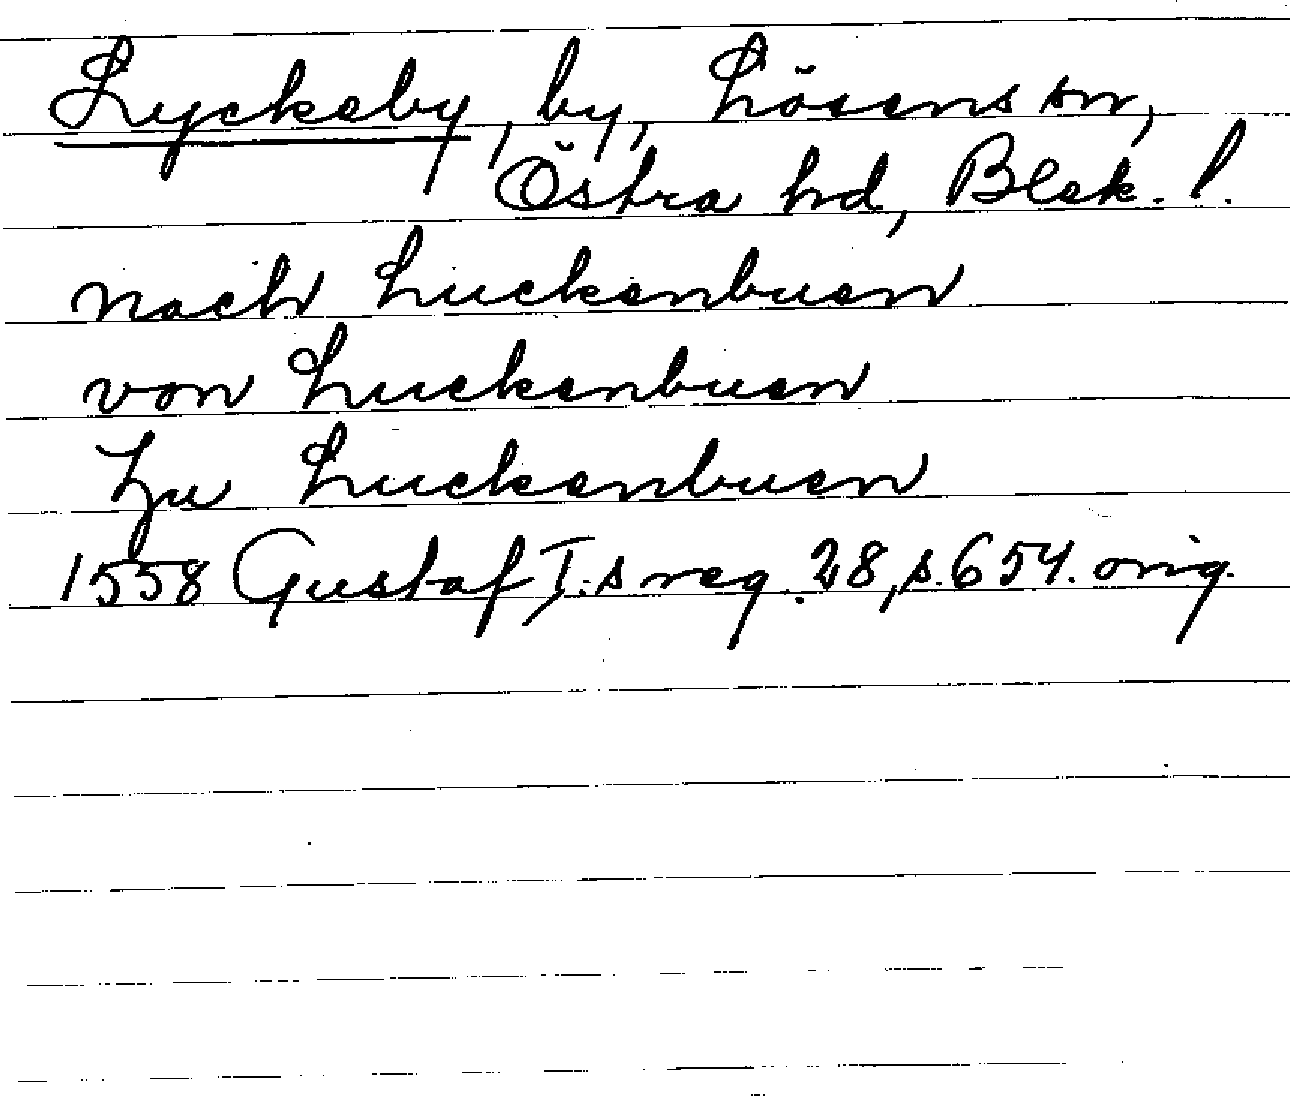 Lyckeby, by, Lösens sn,
Östra hd, Blek. l.
nach Luckenbuen
von Luckenbuen
zu Luckenbuen
1558 Gustaf I:s reg. 28, s. 654. orig.